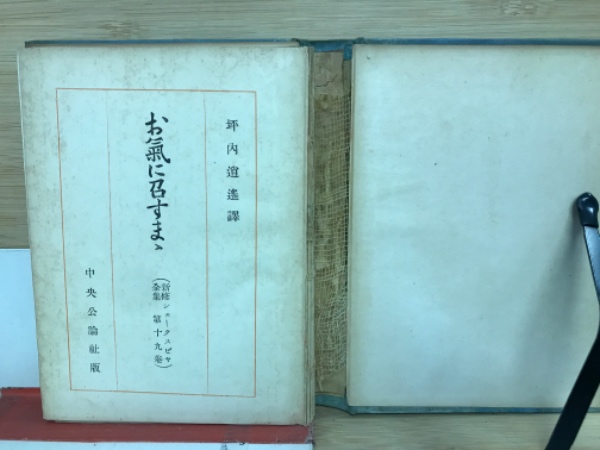 坪内逍遙譯
お氣に召すまゝ
(新修シェークスピヤ
全集 第十九卷)
中央公論社版